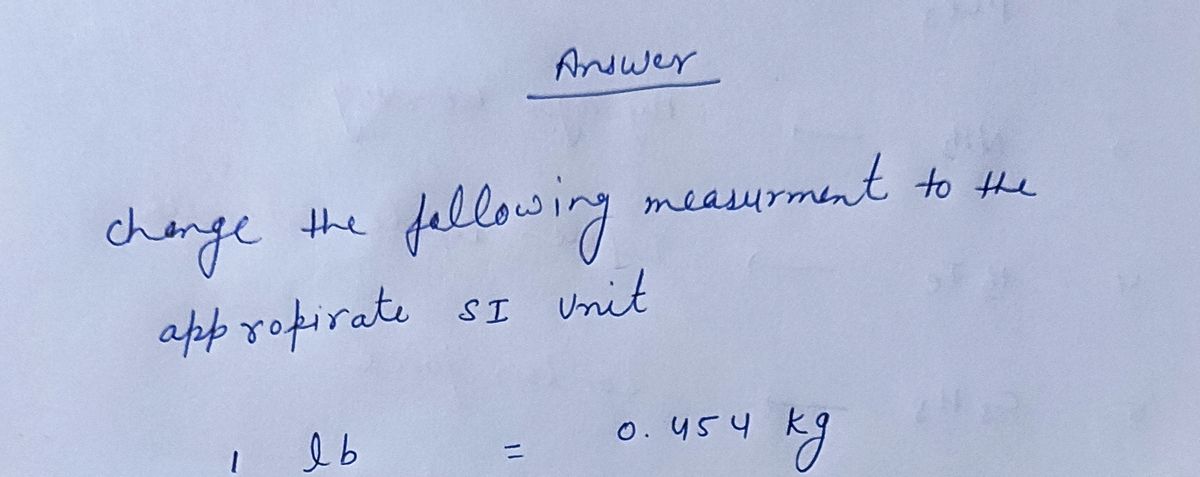 Answer
change the following measurment to the
appropirate SI unit
1 lb = 0.454 kg